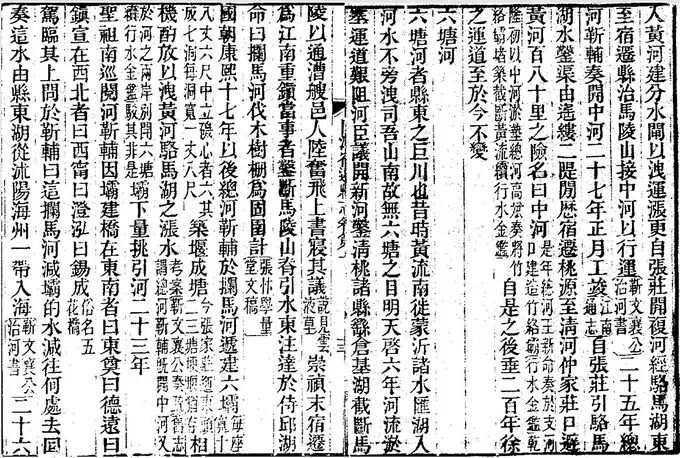 入黃河建分水閘以洩運漲更自張莊開復河經駱馬湖東
至宿遷縣治馬陵山接中河以行運靳文襄公治河書二十五年總
河靳輔奏開中河二十七年正月工竣通志自張莊引駱馬
湖水鑿渠由遙縷二隄閒歷宿遷桃源至清河仲家莊口避
黃河百八十里之險名曰中河是年總河王新命奏於支河口建造竹絡壩行水金鑑乾
隆初以中河淤墊總河高斌奏將竹絡壩堵築截斷黃流續行水金鑑自是之後垂二百年徐
之運道至於今不變
六塘河
六塘河者縣東之巨川也昔時黃流南徙蒙沂諸水匯湖入
河水不旁洩司吾山南故無六塘之目明天啓六年河流淤
墊運道艱阻河臣議開新河鑿清桃諸縣繇倉基湖截斷馬
陵以通漕艘邑人陸奮飛上書寢其議說見雲液草崇禎末宿遷
爲江南重鎮當事者鑿斷馬陵山脊引水東注達於侍邱湖
命曰攔馬河伐木樹柵爲固圉計張忭學量堂文稿
國朝康熙十七年以後總河靳輔於攔馬河遞建六壩每座寬十
八丈六尺中立磯心者六其成七洞每洞寬一丈八尺築堰成塘今張家莊頭塘壩二三塘壩猶存相
機酌放以洩黃河駱馬湖之漲水考案靳文襄公奏疏舊志謂總河靳輔既開中河又
於河之兩岸別開六塘續行水金鑑駁其非是壩下量挑引河二十三年
聖祖南巡閱河靳輔因壩建橋在東南者曰東奠曰德遠曰
鎮宣在西北者曰西甯曰澄泓曰錫成俗名五花橋
駕臨其上問於靳輔曰這攔馬河減壩的水減往何處去回
奏這水由縣東湖從流陽海州一帶入海靳文襄公治河書二十六